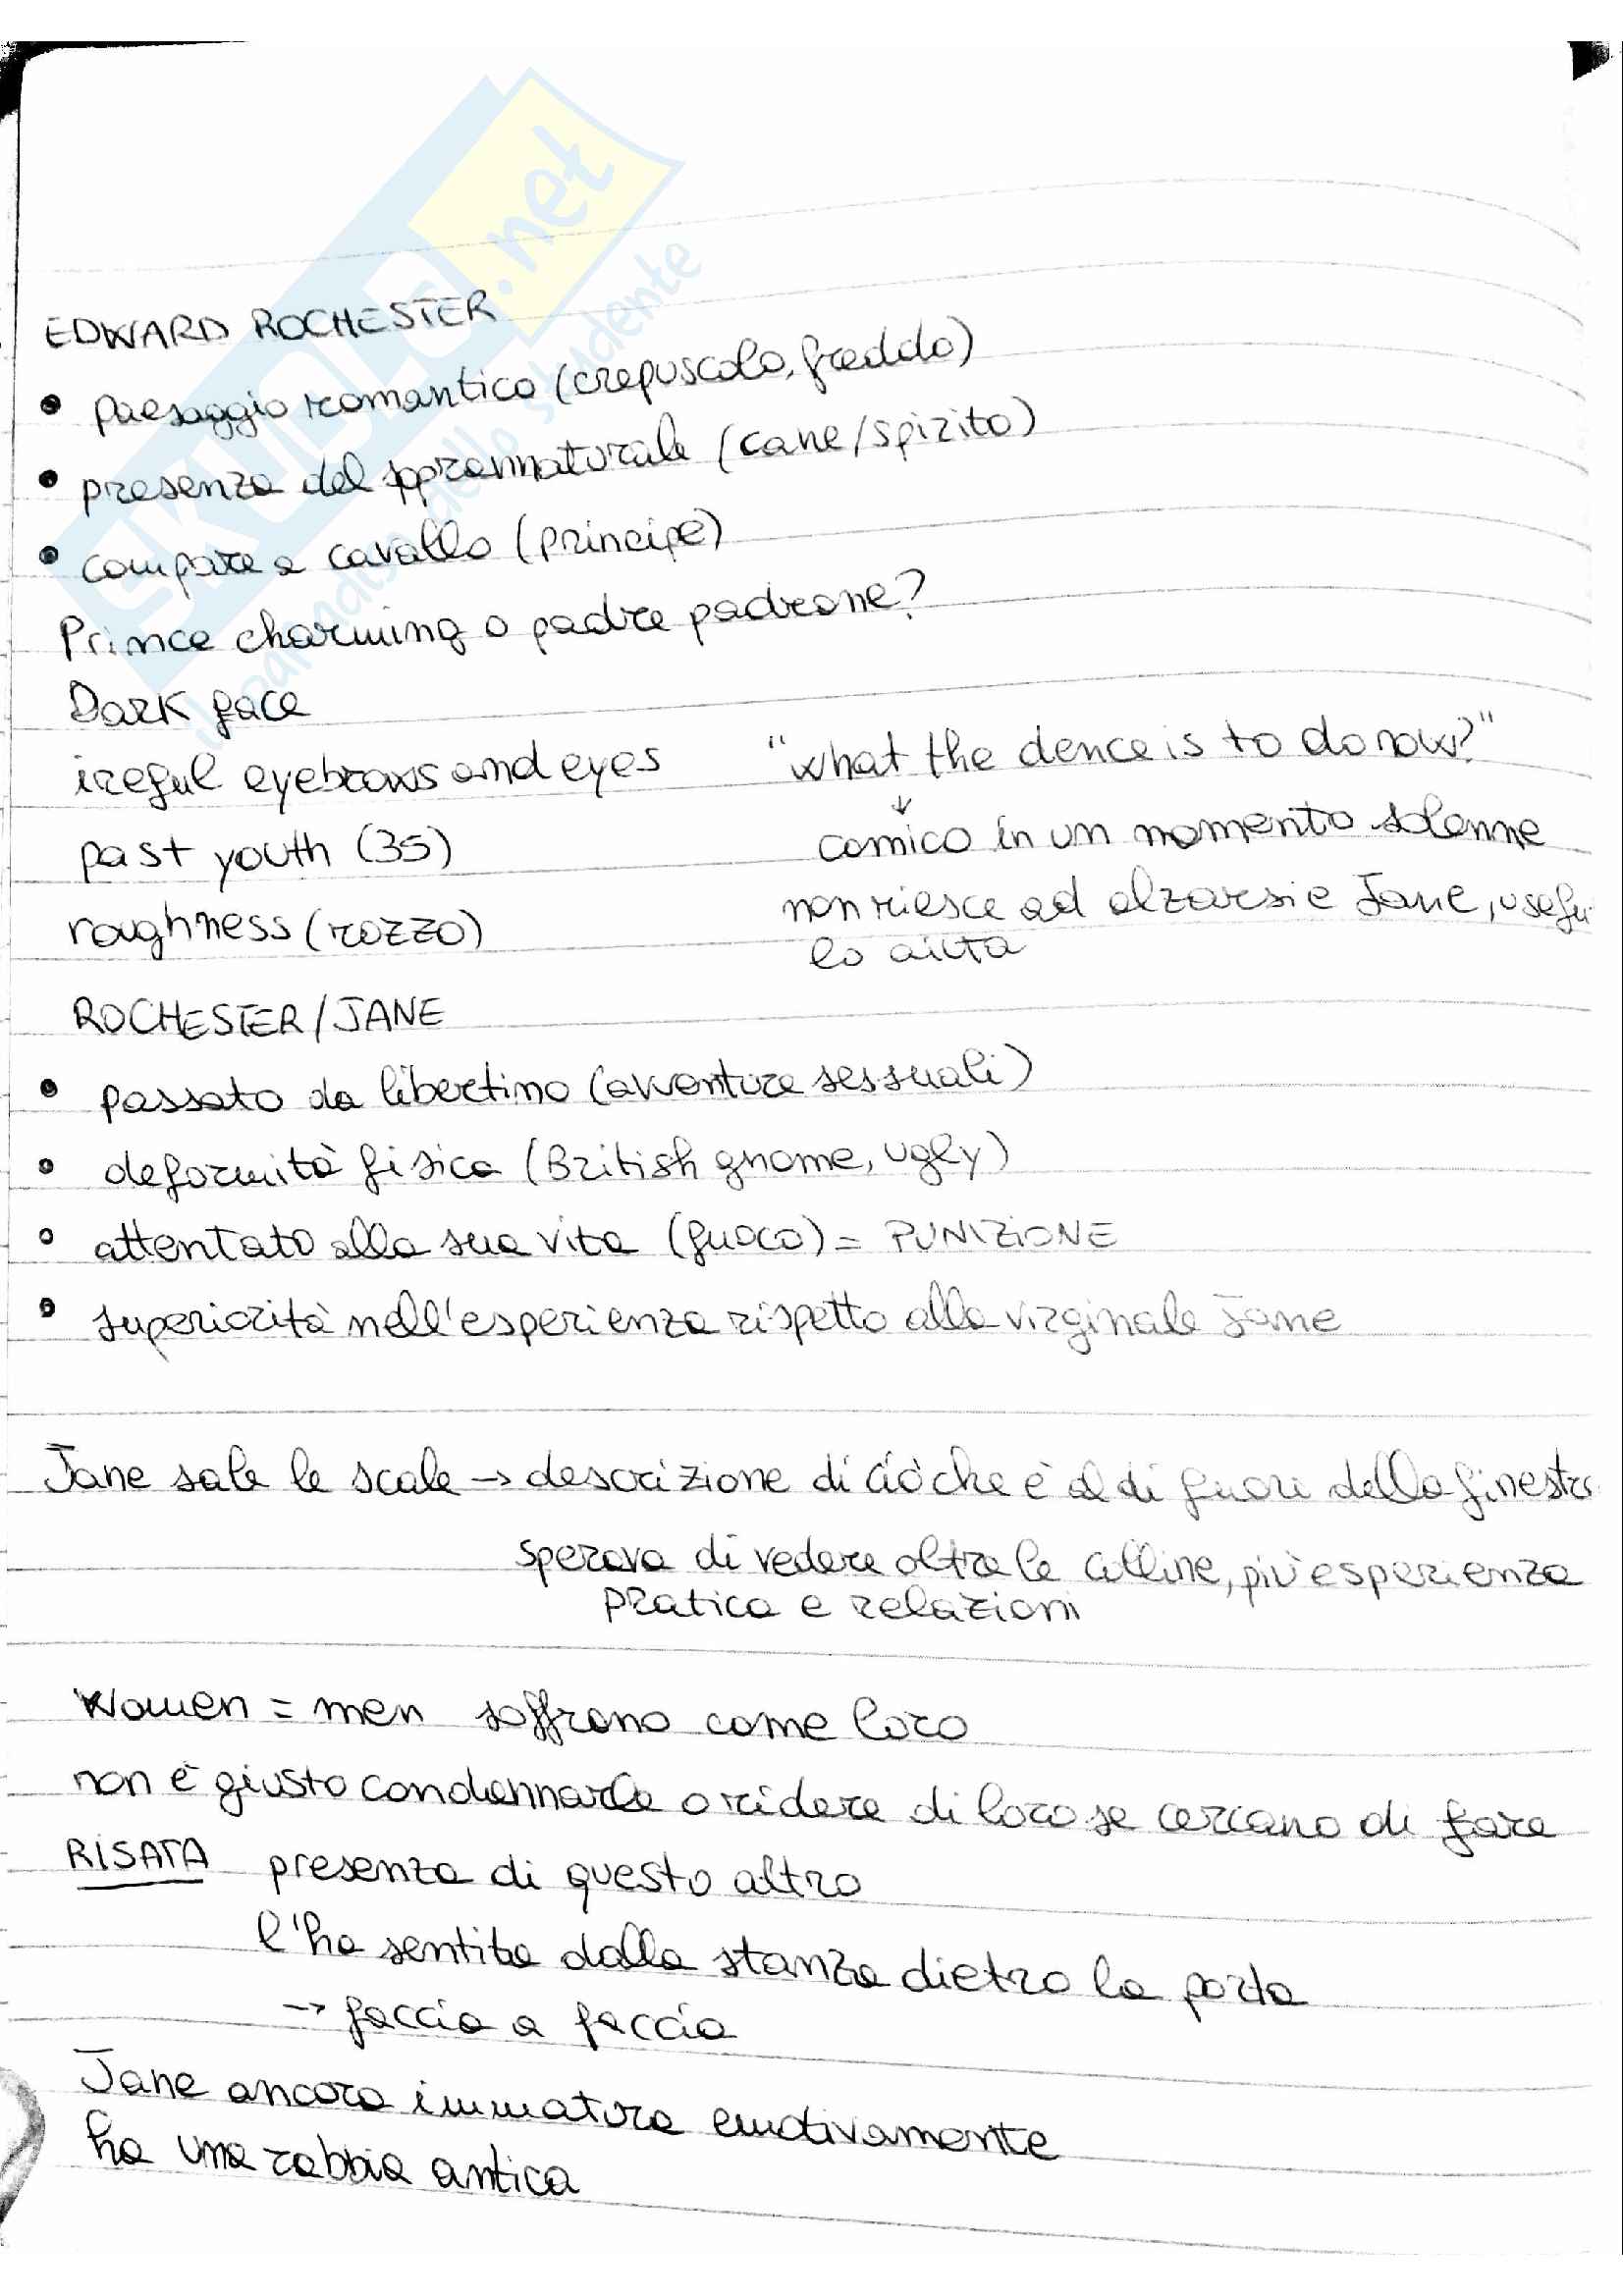 SKUOLA.net
il paradiso dello studente
EDWARD ROCHESTER
• paesaggio romantico (crepuscolo, freddo)
• presenza del soprannaturale (cane/spirito)
• compare a cavallo (principe)
Prince charming o padre padrone?
Dark face
ireful eyebrows and eyes
"what the dence is to do now?"
past youth (35)
↓
comico in un momento solenne
roughness (rozzo)
non riesce ad alzarsi e Jane, usefu
lo aiuta
ROCHESTER/JANE
• passato da libertino (avventure sessuali)
• deformità fisica (British gnome, ugly)
• attentato alla sua vita (fuoco) = PUNIZIONE
• superiorità nell'esperienza rispetto alla virginale Jane
Jane sale le scale → descrizione di ciò che è al di fuori della finestra
sperava di vedere oltre le colline, più esperienza
pratica e relazioni
Women = men soffrono come loro
non è giusto condannarle o ridere di loro se cercano di fare
RISATA presenza di questo altro
l'ha sentita dalla stanza dietro la porta
→ faccia a faccia
Jane ancora immatura emotivamente
ha una rabbia antica